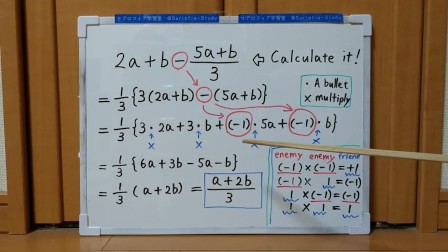 セロスフィア学習室 @Seriatim-Study セロスフィア学習室 @Seriatim-Study
2a+b-\frac{5a+b}{3} ⇦ Calculate it!
・A bullet
× multiply
=\frac{1}{3}{3(2a+b)-(5a+b)}
=\frac{1}{3}{3・2a+3・b+(-1)・5a+(-1)・b}
× × × ×
=\frac{1}{3}{6a+3b-5a-b}
=\frac{1}{3}(a+2b)=\frac{a+2b}{3}
enemy enemy friend
(-1)×(-1)=+1
(-1)× 1 =(-1)
1 ×(-1)=(-1)
1 × 1 = 1